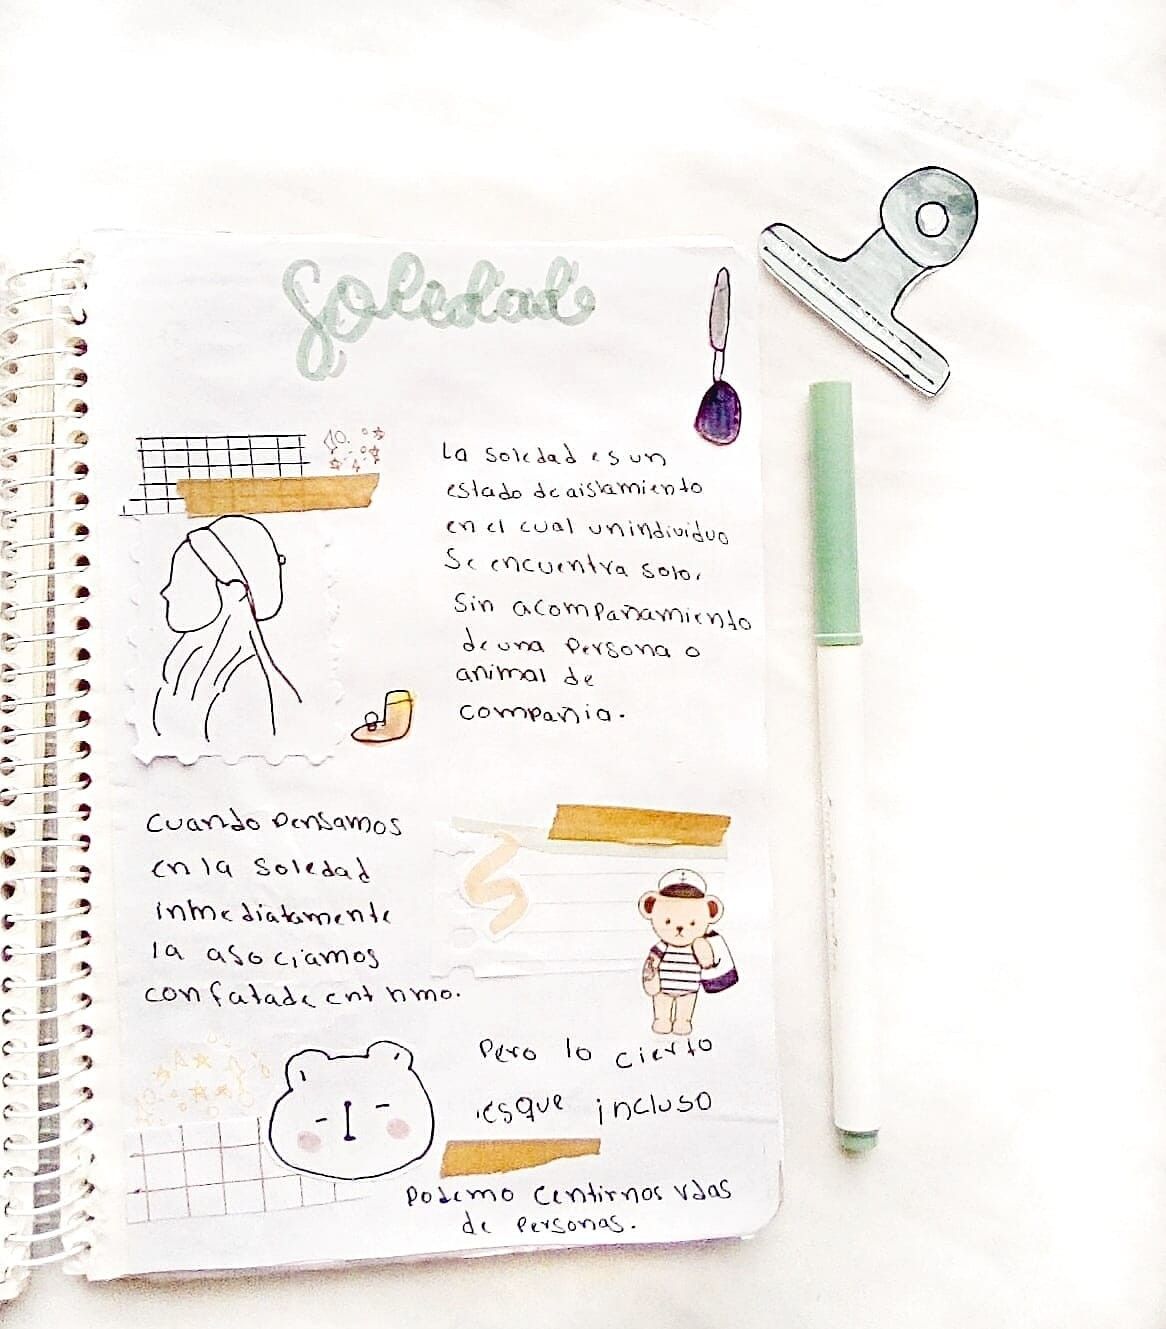 Soledad
La soledad es un
estado de aislamiento
en el cual un individuo
Se encuentra solo,
Sin acompañamiento
de una persona o
animal de
compañia.
Cuando pensamos
en la soledad
inmediatamente
la asociamos
con
Pero lo cierto
es que incluso
Podemo Centirnos
de personas.